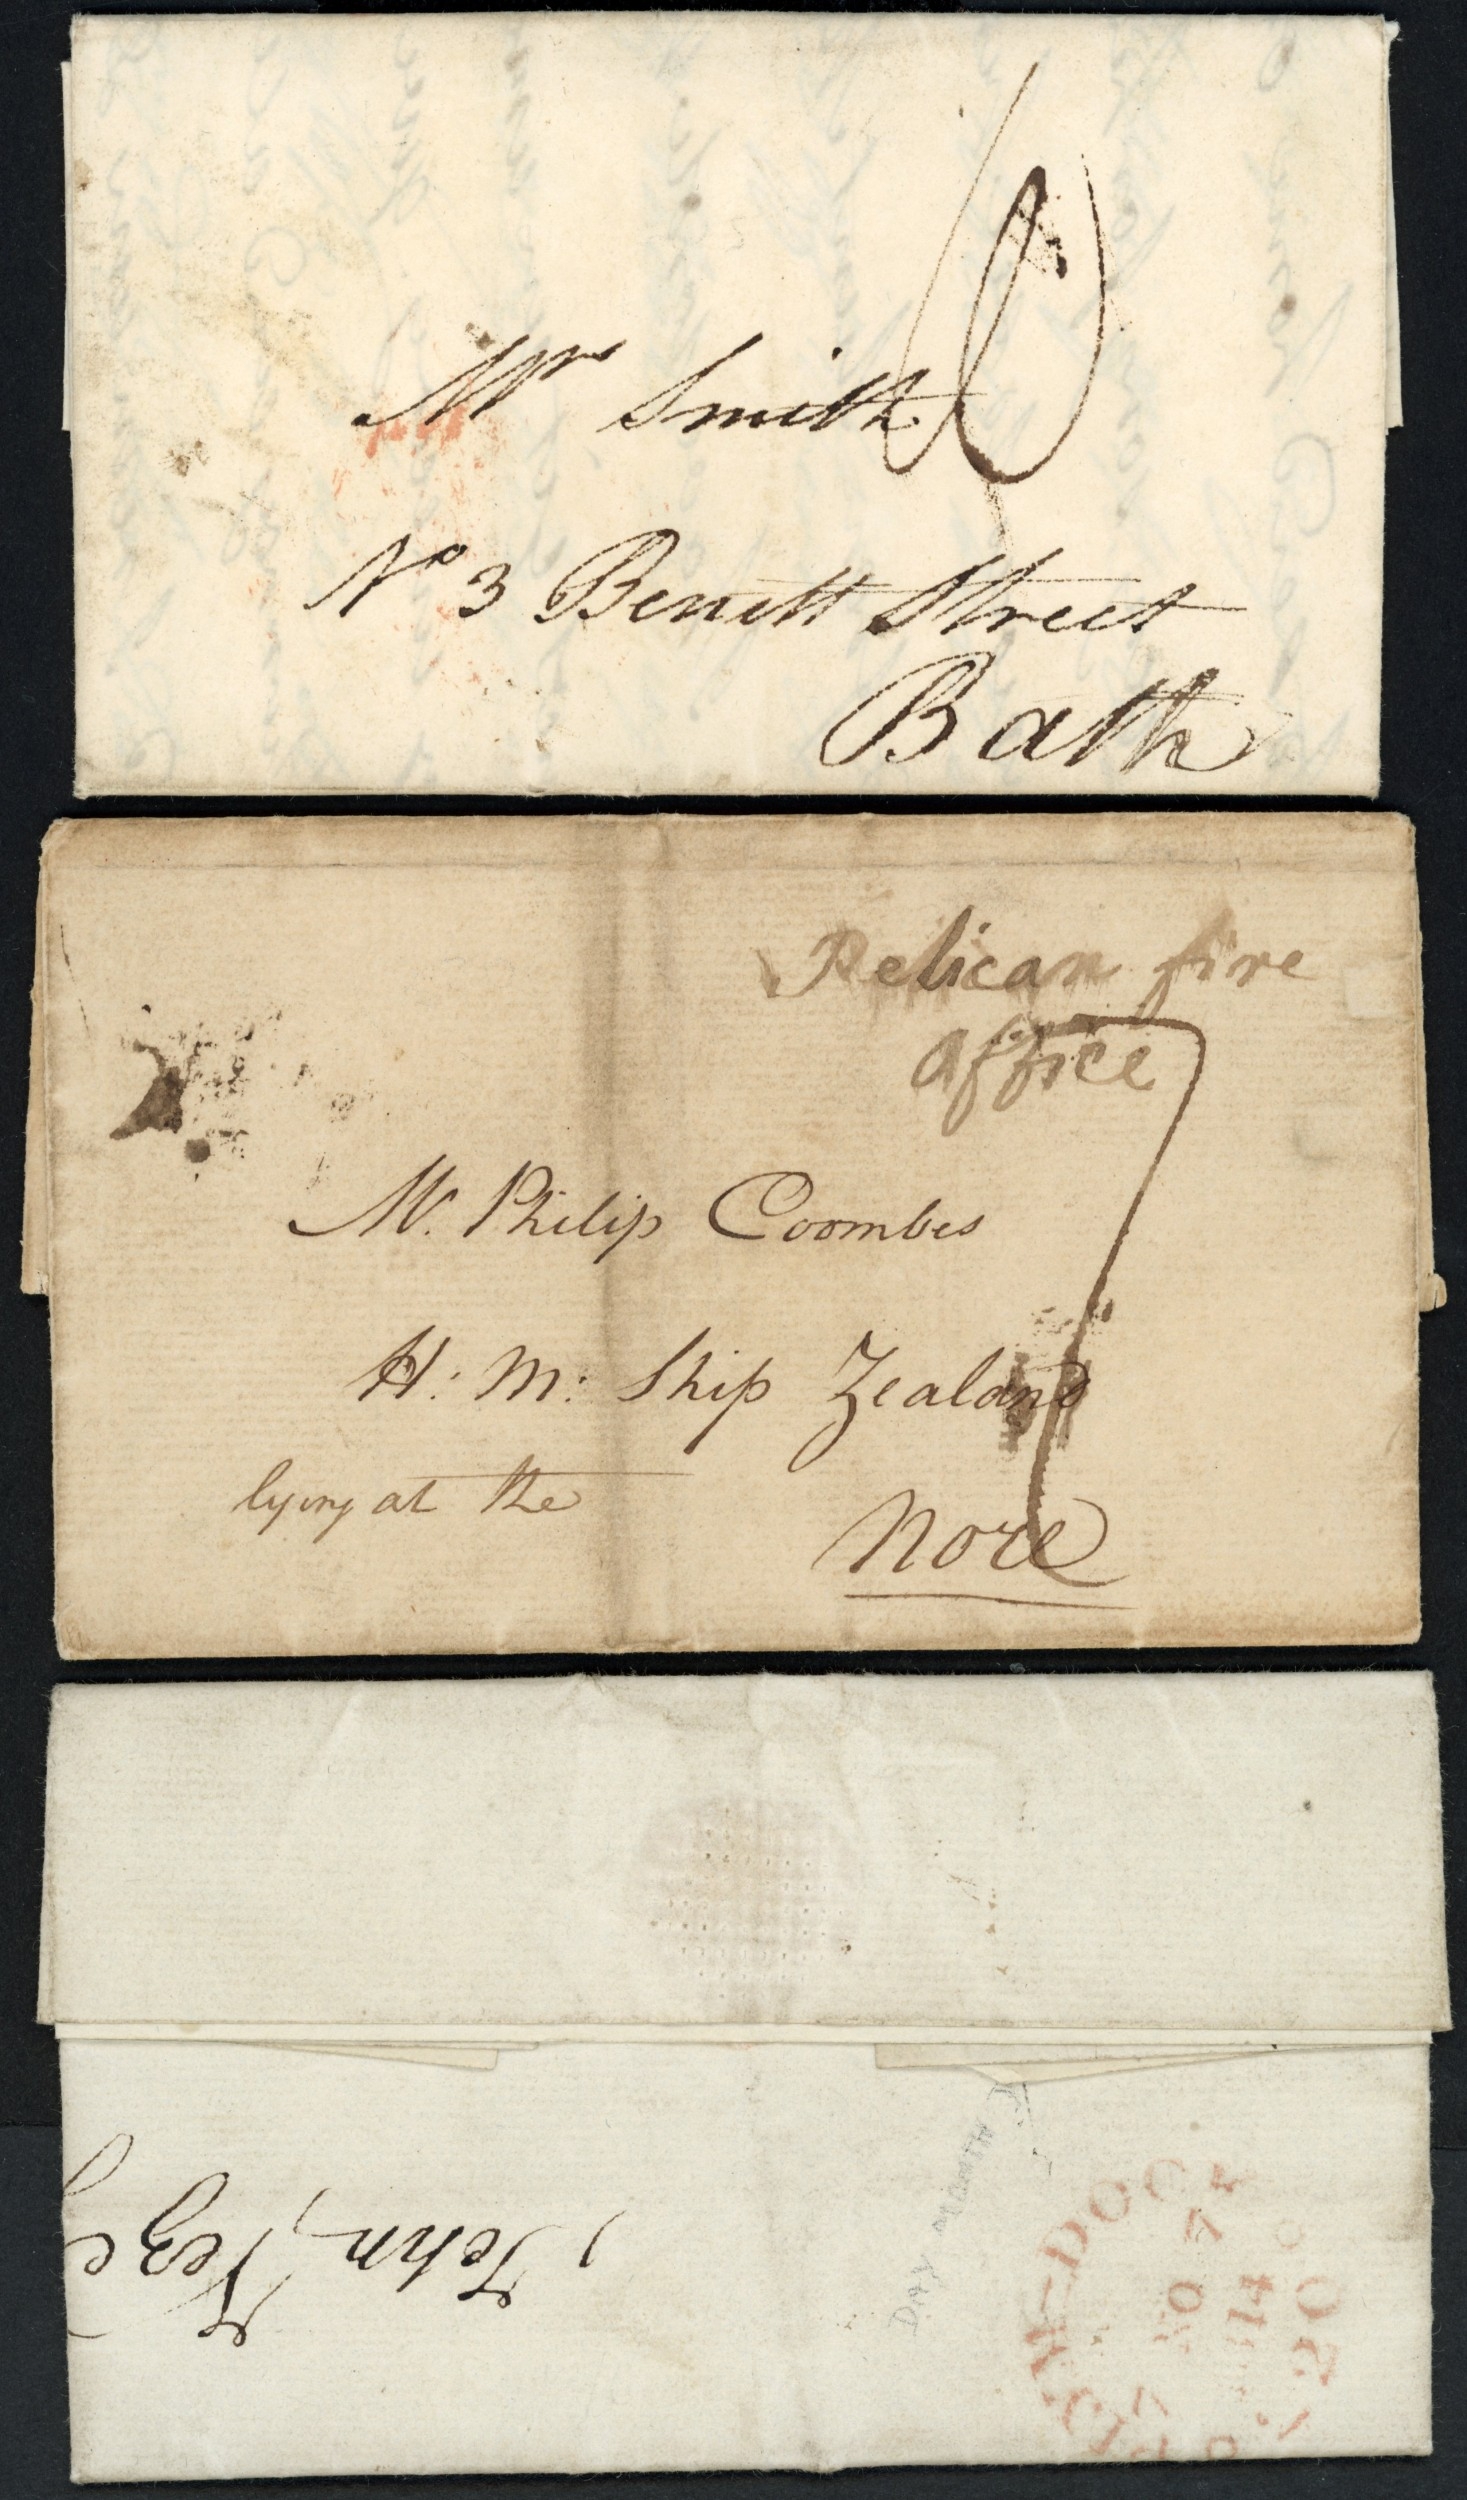 Mr Smith
No 3 Benett Street
Bath
Pelican fire
office
7
Mr. Philip Coombes
H: M: Ship Zealand
lying at the
Nore
John,
DAY MONTH
-DOC
NO 7
27
1814
20